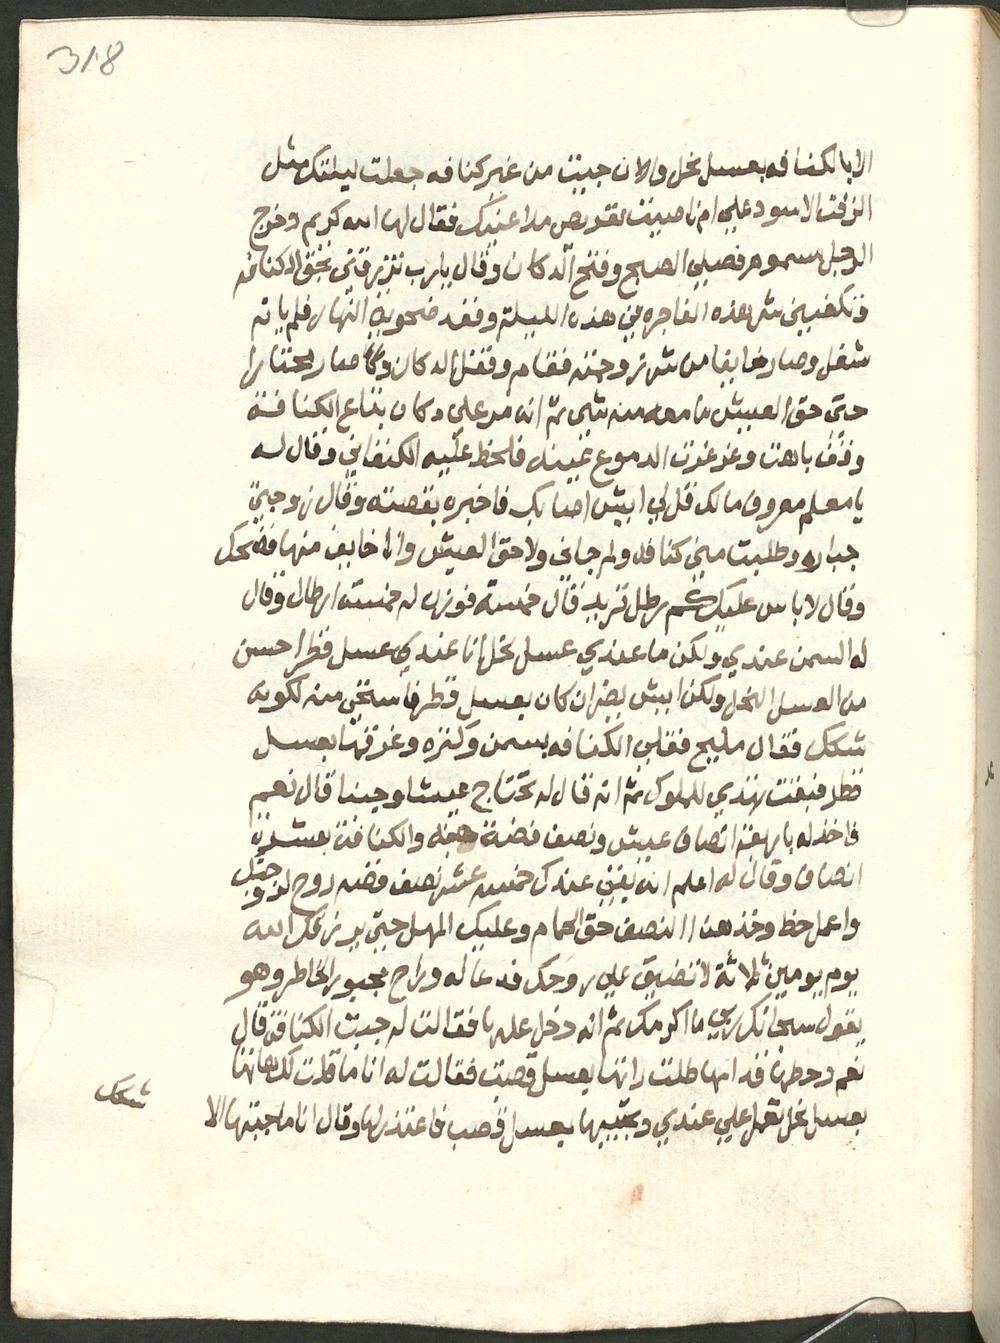 318
الا بالكنافه بعسل نحل والا ان جيت من غير كنافه جعلت ليلتك مثل
الزفت الاسود علي ام ناصيتك فقال لها الله كريم وخرج
الرجل مهموم فصلي الصبح وفتح الدكان وقال يارب ترزقني بحق الكنافه
وتكفيني شر هذه الفاجره في هذه الليلة وقعد ضحوية النهار فلم ياته
شغل وصار خايفا من شر زوجته فقام وقفل الدكان وصار محتارا
حتي حق العيش ما معه منه شي ثم انه مر علي دكان بتاع الكنافة
وقف باهت وغرغرت الدموع عينه فلحظ عليه الكنفاني وقال له
يا معلم معروف مالك قل لي ايش اصابك فاخبره بقصته وقال زوجتي
جباره وطلبت مني كنافه ولم جاني ولا حق العيش وانا خايف منها فضحك
وقال لا باس عليك كم رطل تريد قال خمسة فوزن له خمسة ارطال وقال
له السمن عندي ولكن ما عندي عسل نحل انا عندي عسل قطر احسن
من العسل النحل ولكن ايش يضر ان كان بعسل قطر فاستحي منه لكونه
شكك فقال مليح فقلي الكنافه بسمن وكتره وغرقها بعسل
قطر فبقت تهدي للملوك ثم انه قال له تحتاج عيشا وجبنا قال نعم
فاخذ له باربعة انصاف عيش ونصف فضة جبنه والكنافة بعشرة
انصاف وقال له اعلم انه بقي عندك خمسه عشر نصف فضه روح لزوجتك
واعمل حظ وخذ هذا النصف حق الحمام وعليك المهل حتي يرزقك الله
يوم يومين ثلاثة لا تضيق علي روحك فدعا له وراح مجبور الخاطر وهو
يقول سبحانك ربي ما اكرمك ثم انه دخل عليها فقالت له جبت الكنافة قال
نعم وحطها قدامها طلت راتها بعسل قصب فقالت له انا ما قلت لك هاتها
بعسل نحل تعمل علي عندي وتجيبها بعسل قصب فاعتذر لها وقال انا ما جبتها الا
شكك